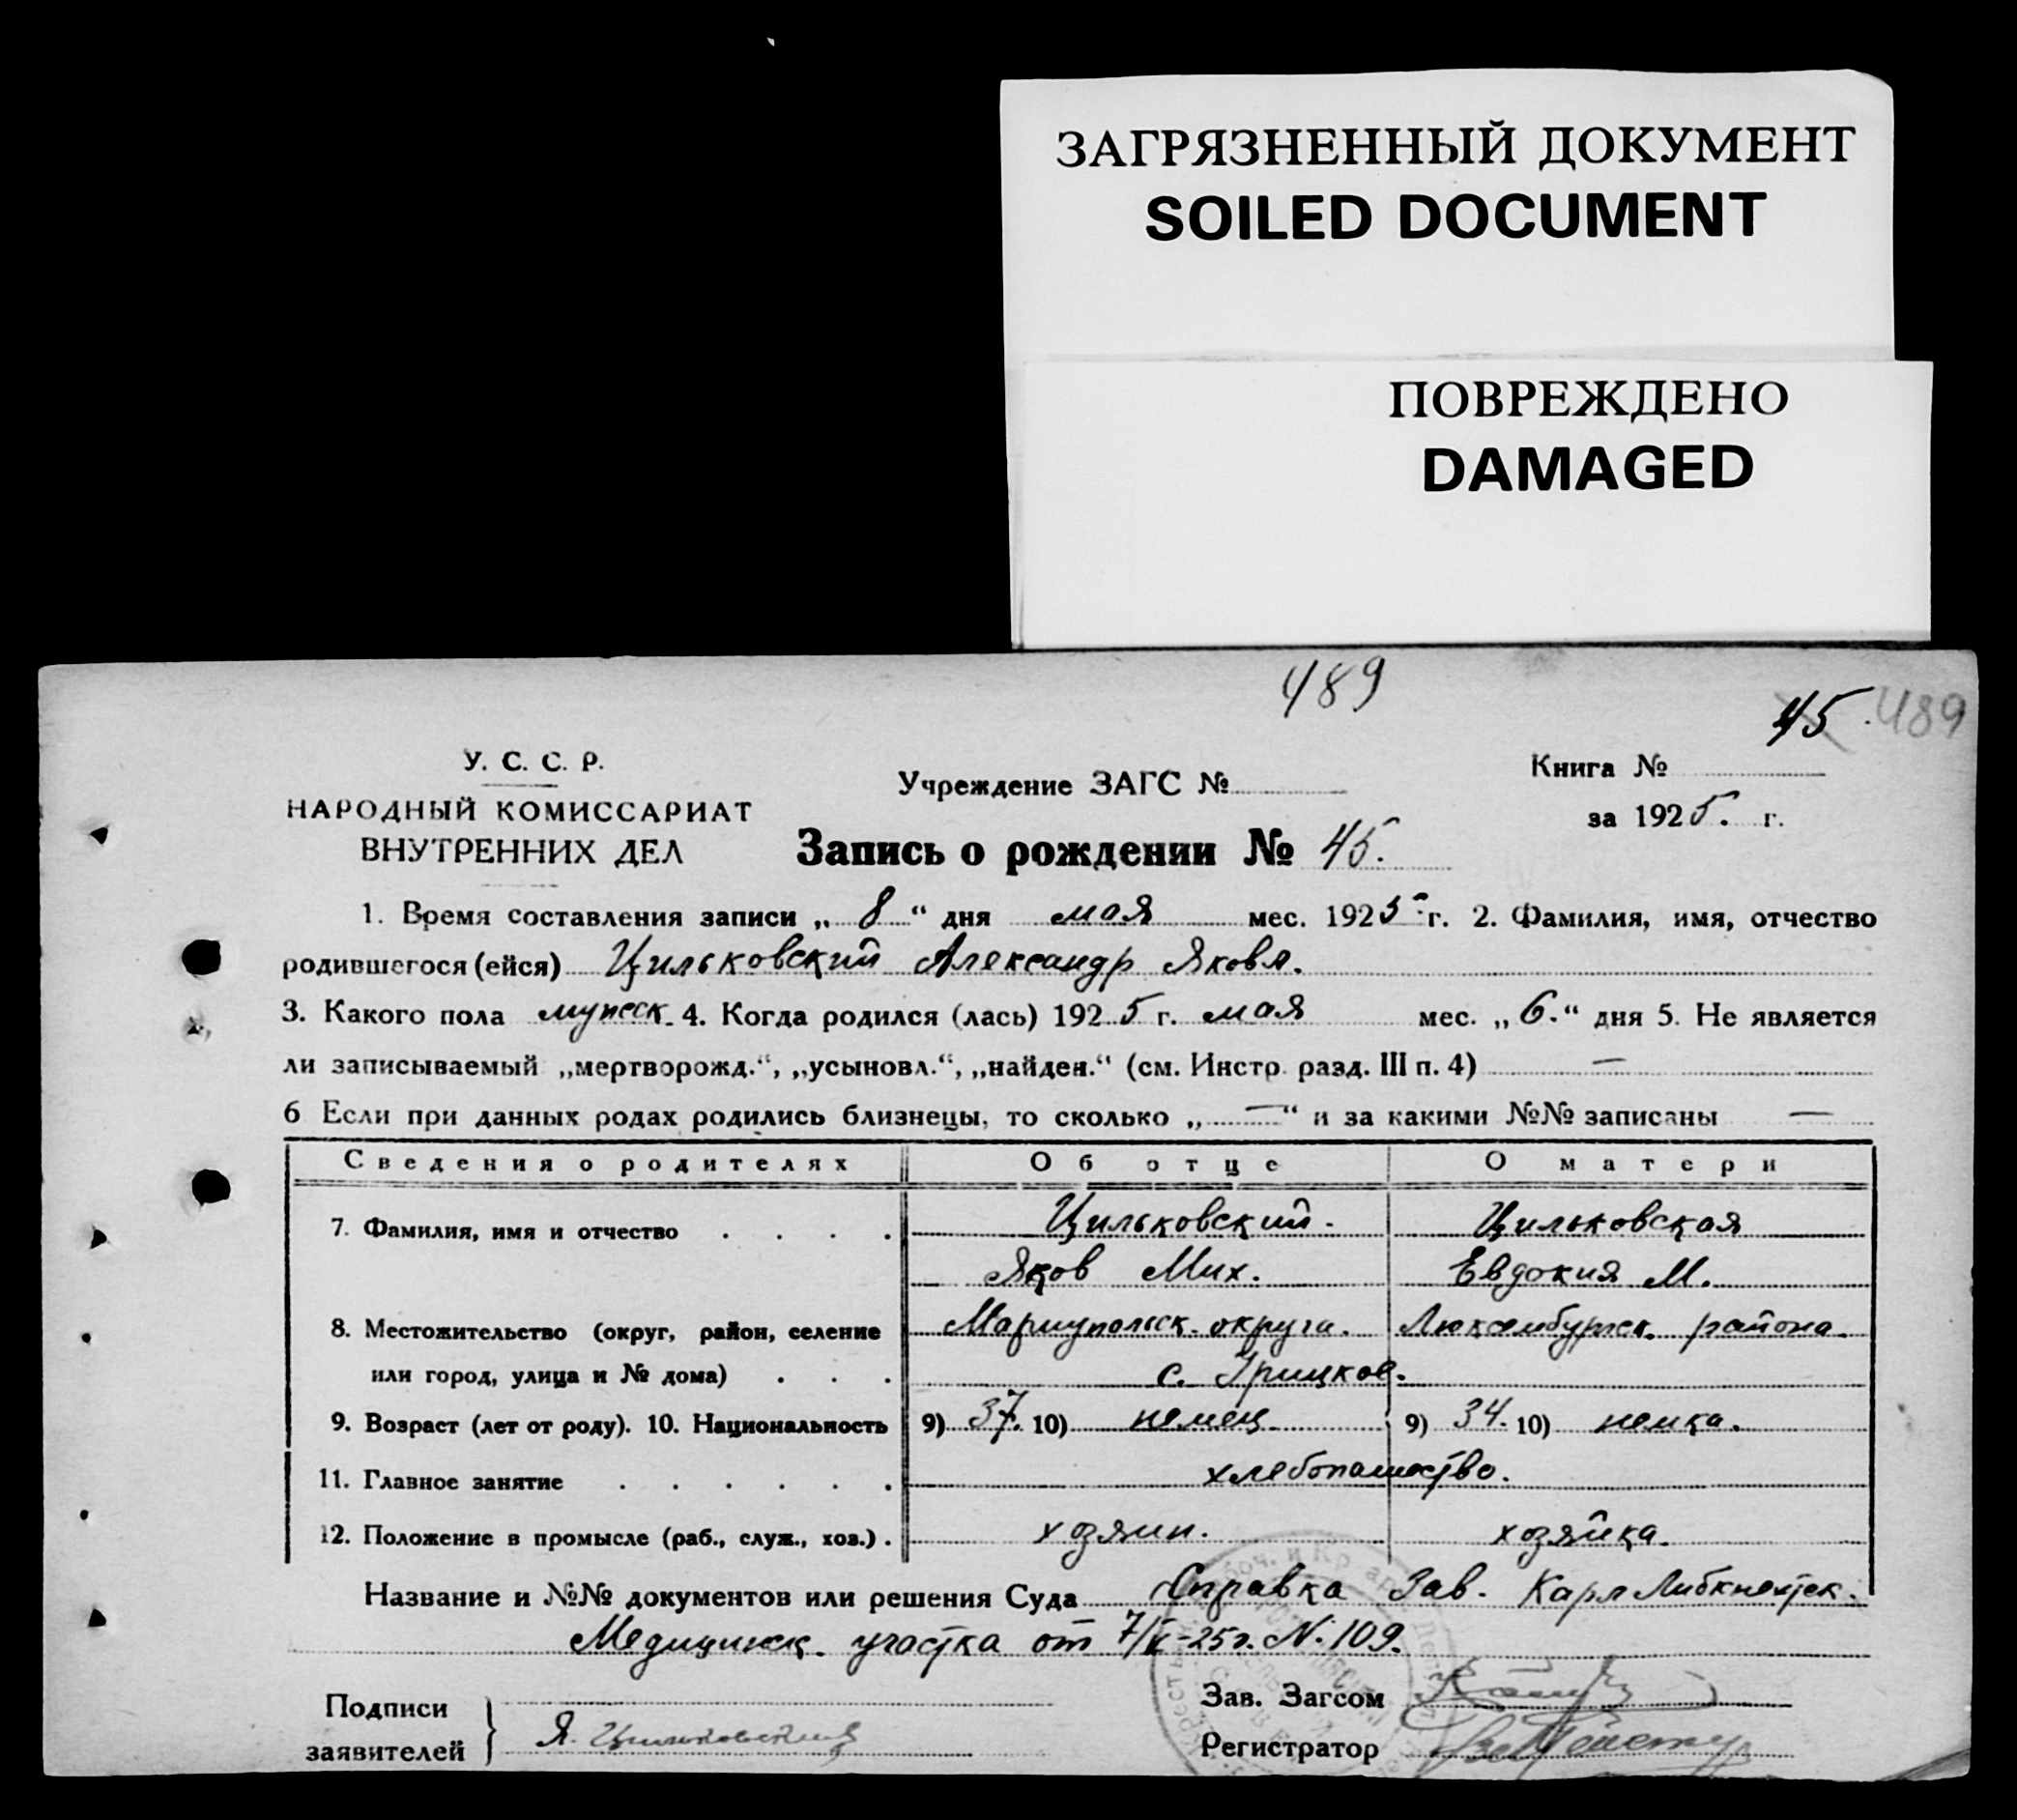 ЗАГРЯЗНЕННЫЙ ДОКУМЕНТ
SOILED DOCUMENT
ПОВРЕЖДЕНО
DAMAGED
489
45. 489
У. С. С. Р.
НАРОДНЫЙ КОМИССАРИАТ
ВНУТРЕННИХ ДЕЛ
Учреждение ЗАГС №
Книга №
за 1925. г.
Запись о рождении № 45.
1. Время составления записи „ 8 “ дня мая мес. 1925 г. 2. Фамилия, имя, отчество
родившегося (ейся) Цильковский Александр Яковл.
3. Какого пола мужск. 4. Когда родился (лась) 1925 г. мая мес. „ 6. “ дня 5. Не является
ли записываемый „мертворожд.“, „усыновл.“, „найден.“ (см. Инстр. разд. III п. 4) —
6 Если при данных родах родились близнецы, то сколько „ — “ и за какими №№ записаны —
Сведения о родителях Об отце О матери
7. Фамилия, имя и отчество Цильковский. Цильковская
Яков Мих. Евдокия М.
8. Местожительство (округ, район, селение Мариупольск. округа. Люксембургск. района.
или город, улица и № дома) с. Грицков.
9. Возраст (лет от роду). 10. Национальность 9) 37. 10) немец. 9) 34. 10) немка.
11. Главное занятие хлебопашество.
12. Положение в промысле (раб., служ., хоз.). хозяин. хозяйка.
Название и №№ документов или решения Суда Справка Зав. Карл Либкнехтск.
Медицинск. участка от 7/V-25г. N. 109.
Подписи
заявителей
Я. Цильковский
Зав. Загсом
Регистратор